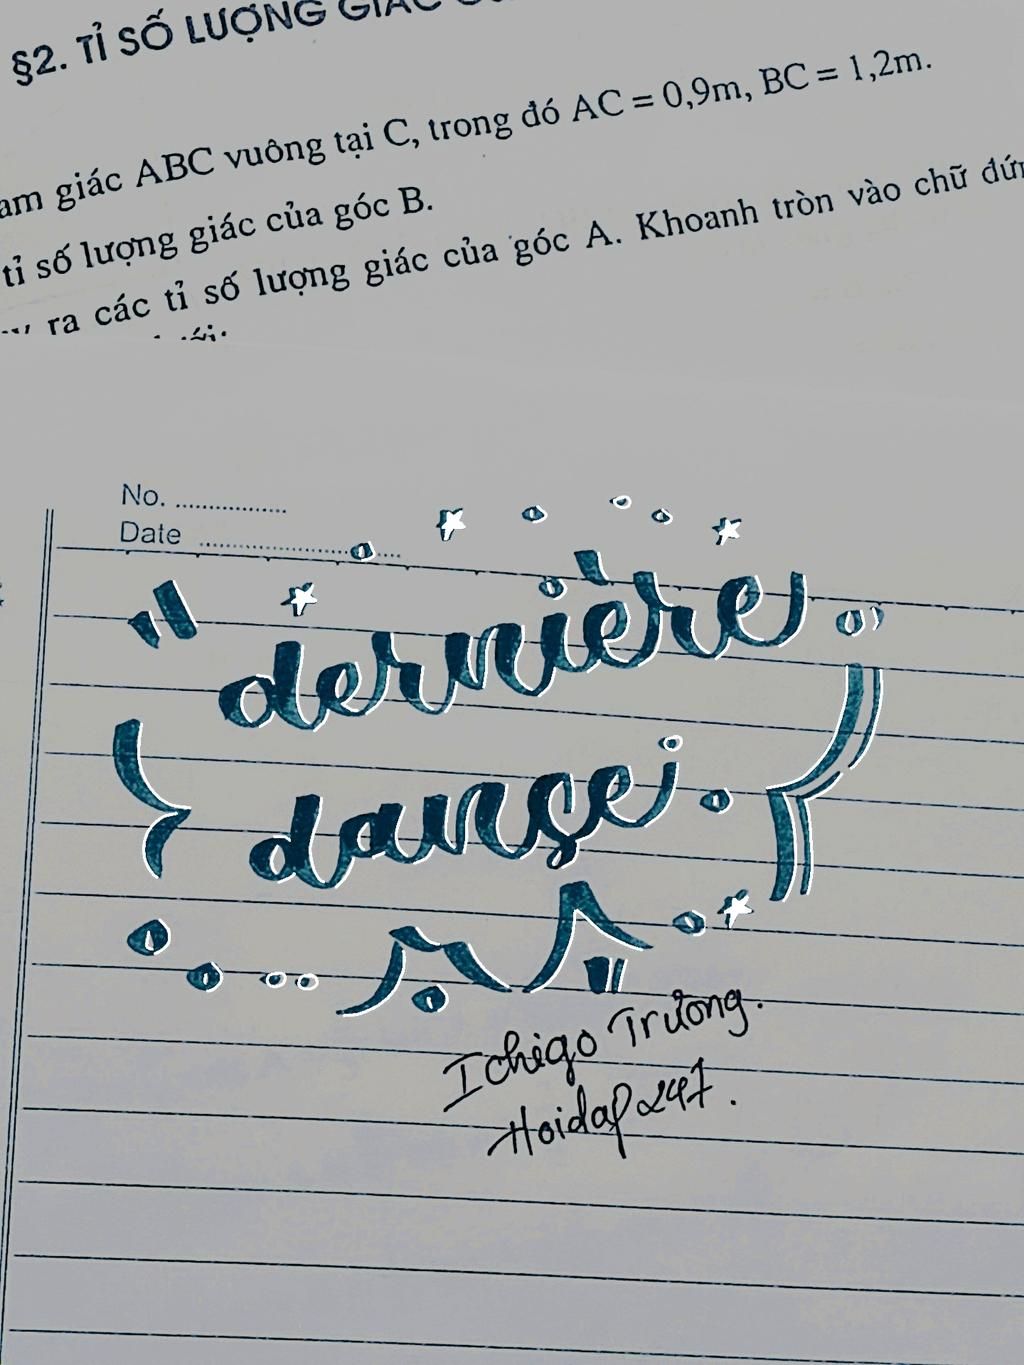 §2. TỈ SỐ LƯỢNG GIÁC
am giác ABC vuông tại C, trong đó AC = 0,9m, BC = 1,2m.
tỉ số lượng giác của góc B.
ra các tỉ số lượng giác của góc A. Khoanh tròn vào chữ đứn
No. ................
Date ............................
dernière
danse
Ichigo Trương.
Hoidap247.